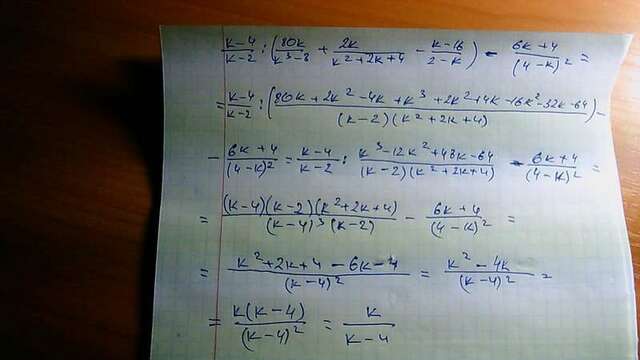 \frac{k-4}{k-2} : ( \frac{80k}{k^3-8} + \frac{2k}{k^2+2k+4} - \frac{k-16}{2-k} ) - \frac{6k+4}{(4-k)^2} =
= \frac{k-4}{k-2} : ( \frac{80k+2k^2-4k+k^3+2k^2+4k-16k^2-32k-64}{(k-2)(k^2+2k+4)} ) -
- \frac{6k+4}{(4-k)^2} = \frac{k-4}{k-2} : \frac{k^3-12k^2+48k-64}{(k-2)(k^2+2k+4)} - \frac{6k+4}{(4-k)^2} =
= \frac{(k-4)(k-2)(k^2+2k+4)}{(k-4)^3(k-2)} - \frac{6k+4}{(4-k)^2} =
= \frac{k^2+2k+4-6k-4}{(k-4)^2} = \frac{k^2-4k}{(k-4)^2} =
= \frac{k(k-4)}{(k-4)^2} = \frac{k}{k-4}